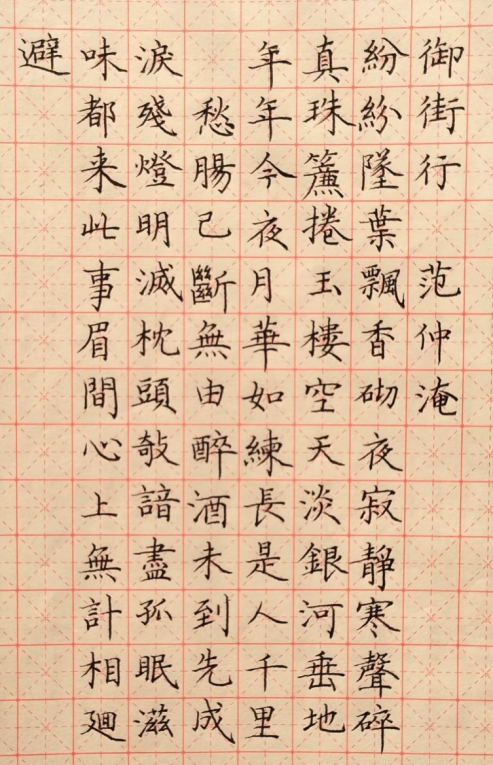 御街行 范仲淹
紛紛墜葉飄香砌夜寂靜寒聲碎
真珠簾捲玉樓空天淡銀河垂地
年年今夜月華如練長是人千里
愁腸己斷無由醉酒未到先成
淚殘燈明滅枕頭敧諳盡孤眠滋
味都来此事眉間心上無計相廻
避